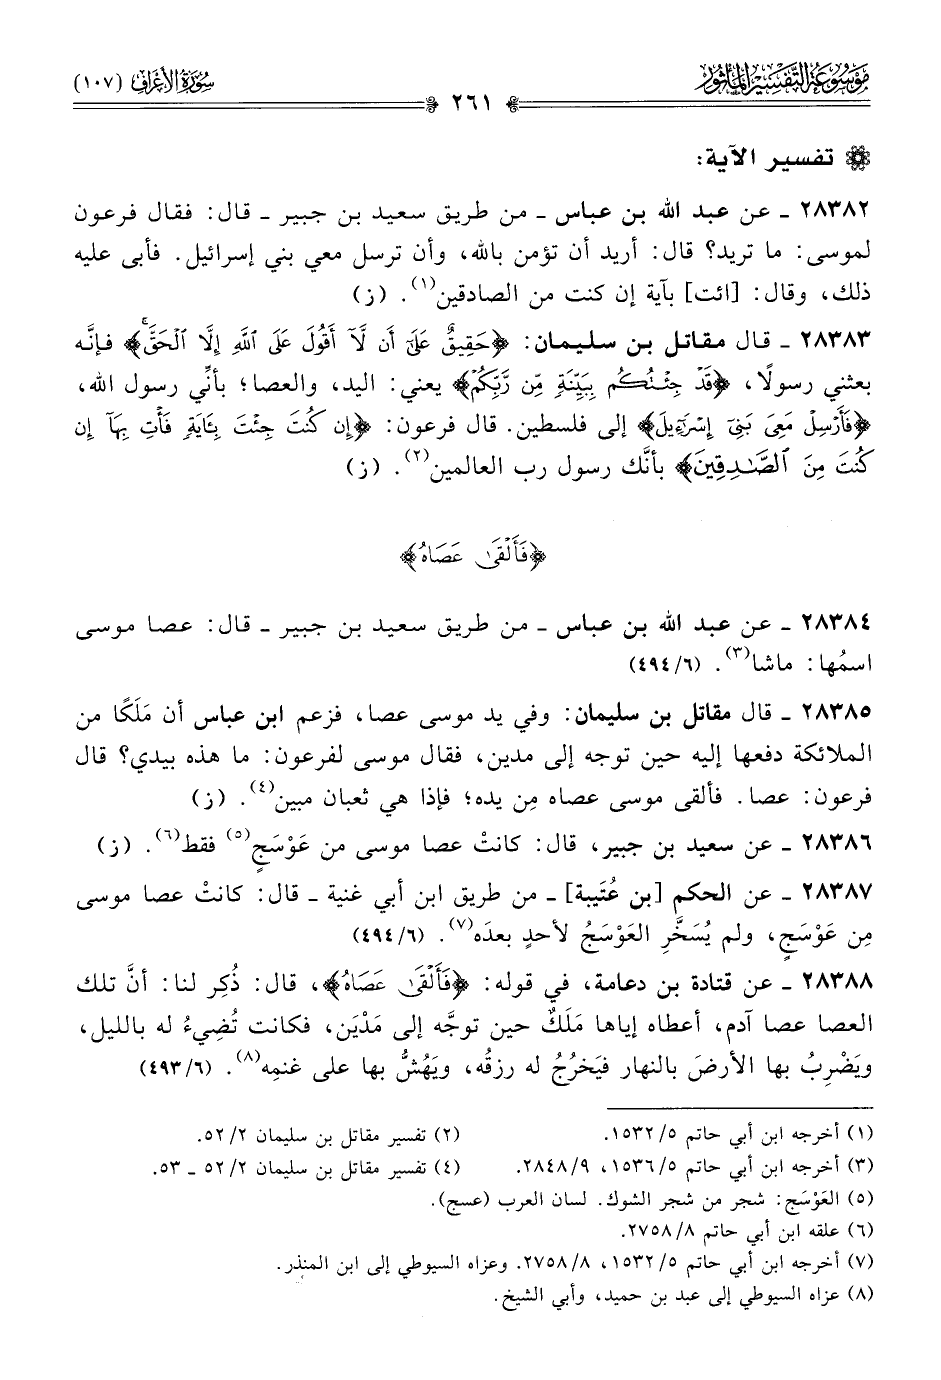 مَوْسُوعَةُ التَّفْسِيرِ المَأْثُورِ
٢٦١
سُورَةُ الأَعْرَافِ (١٠٧)
تفسير الآية:
٢٨٣٨٢ ـ عن عبد الله بن عباس ـ من طريق سعيد بن جبير ـ قال: فقال فرعون
لموسى: ما تريد؟ قال: أريد أن تؤمن بالله، وأن ترسل معي بني إسرائيل. فأبى عليه
ذلك، وقال: [ائت] بآية إن كنت من الصادقين(١). (ز)
٢٨٣٨٣ ـ قال مقاتل بن سليمان: ﴿حَقِيقٌ عَلَىٰٓ أَن لَّآ أَقُولَ عَلَى ٱللَّهِ إِلَّا ٱلْحَقَّۚ﴾ فإنَّه
بعثني رسولًا، ﴿قَدْ جِئْتُكُم بِبَيِّنَةٍ مِّن رَّبِّكُمْ﴾ يعني: اليد، والعصا؛ بأنِّي رسول الله،
﴿فَأَرْسِلْ مَعِىَ بَنِىٓ إِسْرَٰٓءِيلَ﴾ إلى فلسطين. قال فرعون: ﴿إِن كُنتَ جِئْتَ بِـَٔايَةٍ فَأْتِ بِهَآ إِن
كُنتَ مِنَ ٱلصَّٰدِقِينَ﴾ بأنَّك رسول رب العالمين(٢). (ز)
﴿فَأَلْقَىٰ عَصَاهُ﴾
٢٨٣٨٤ ـ عن عبد الله بن عباس ـ من طريق سعيد بن جبير ـ قال: عصا موسى
اسمُها: ماشا(٣). (٤٩٤/٦)
٢٨٣٨٥ ـ قال مقاتل بن سليمان: وفي يد موسى عصا، فزعم ابن عباس أن مَلَكًا من
الملائكة دفعها إليه حين توجه إلى مدين، فقال موسى لفرعون: ما هذه بيدي؟ قال
فرعون: عصا. فألقى موسى عصاه مِن يده؛ فإذا هي ثعبان مبين(٤). (ز)
٢٨٣٨٦ ـ عن سعيد بن جبير، قال: كانتْ عصا موسى من عَوْسَجٍ(٥) فقط(٦). (ز)
٢٨٣٨٧ ـ عن الحكم [بن عُتَيبة] ـ من طريق ابن أبي غنية ـ قال: كانتْ عصا موسى
مِن عَوْسَجٍ، ولم يُسَخَّرِ العَوْسَجُ لأحدٍ بعدَه(٧). (٤٩٤/٦)
٢٨٣٨٨ ـ عن قتادة بن دعامة، في قوله: ﴿فَأَلْقَىٰ عَصَاهُ﴾، قال: ذُكِر لنا: أنَّ تلك
العصا عصا آدم، أعطاه إياها مَلَكٌ حين توجَّه إلى مَدْيَن، فكانت تُضِيءُ له بالليل،
ويَضْرِبُ بها الأرضَ بالنهار فيَخرُجُ له رزقُه، ويَهُشُّ بها على غنمِه(٨). (٤٩٣/٦)
(١) أخرجه ابن أبي حاتم ١٥٣٢/٥.
(٢) تفسير مقاتل بن سليمان ٥٢/٢.
(٣) أخرجه ابن أبي حاتم ١٥٣٦/٥، ٢٨٤٨/٩.
(٤) تفسير مقاتل بن سليمان ٥٢/٢ ـ ٥٣.
(٥) العَوْسَج: شجر من شجر الشوك. لسان العرب (عسج).
(٦) علقه ابن أبي حاتم ٢٧٥٨/٨.
(٧) أخرجه ابن أبي حاتم ١٥٣٢/٥، ٢٧٥٨/٨. وعزاه السيوطي إلى ابن المنذر.
(٨) عزاه السيوطي إلى عبد بن حميد، وأبي الشيخ.